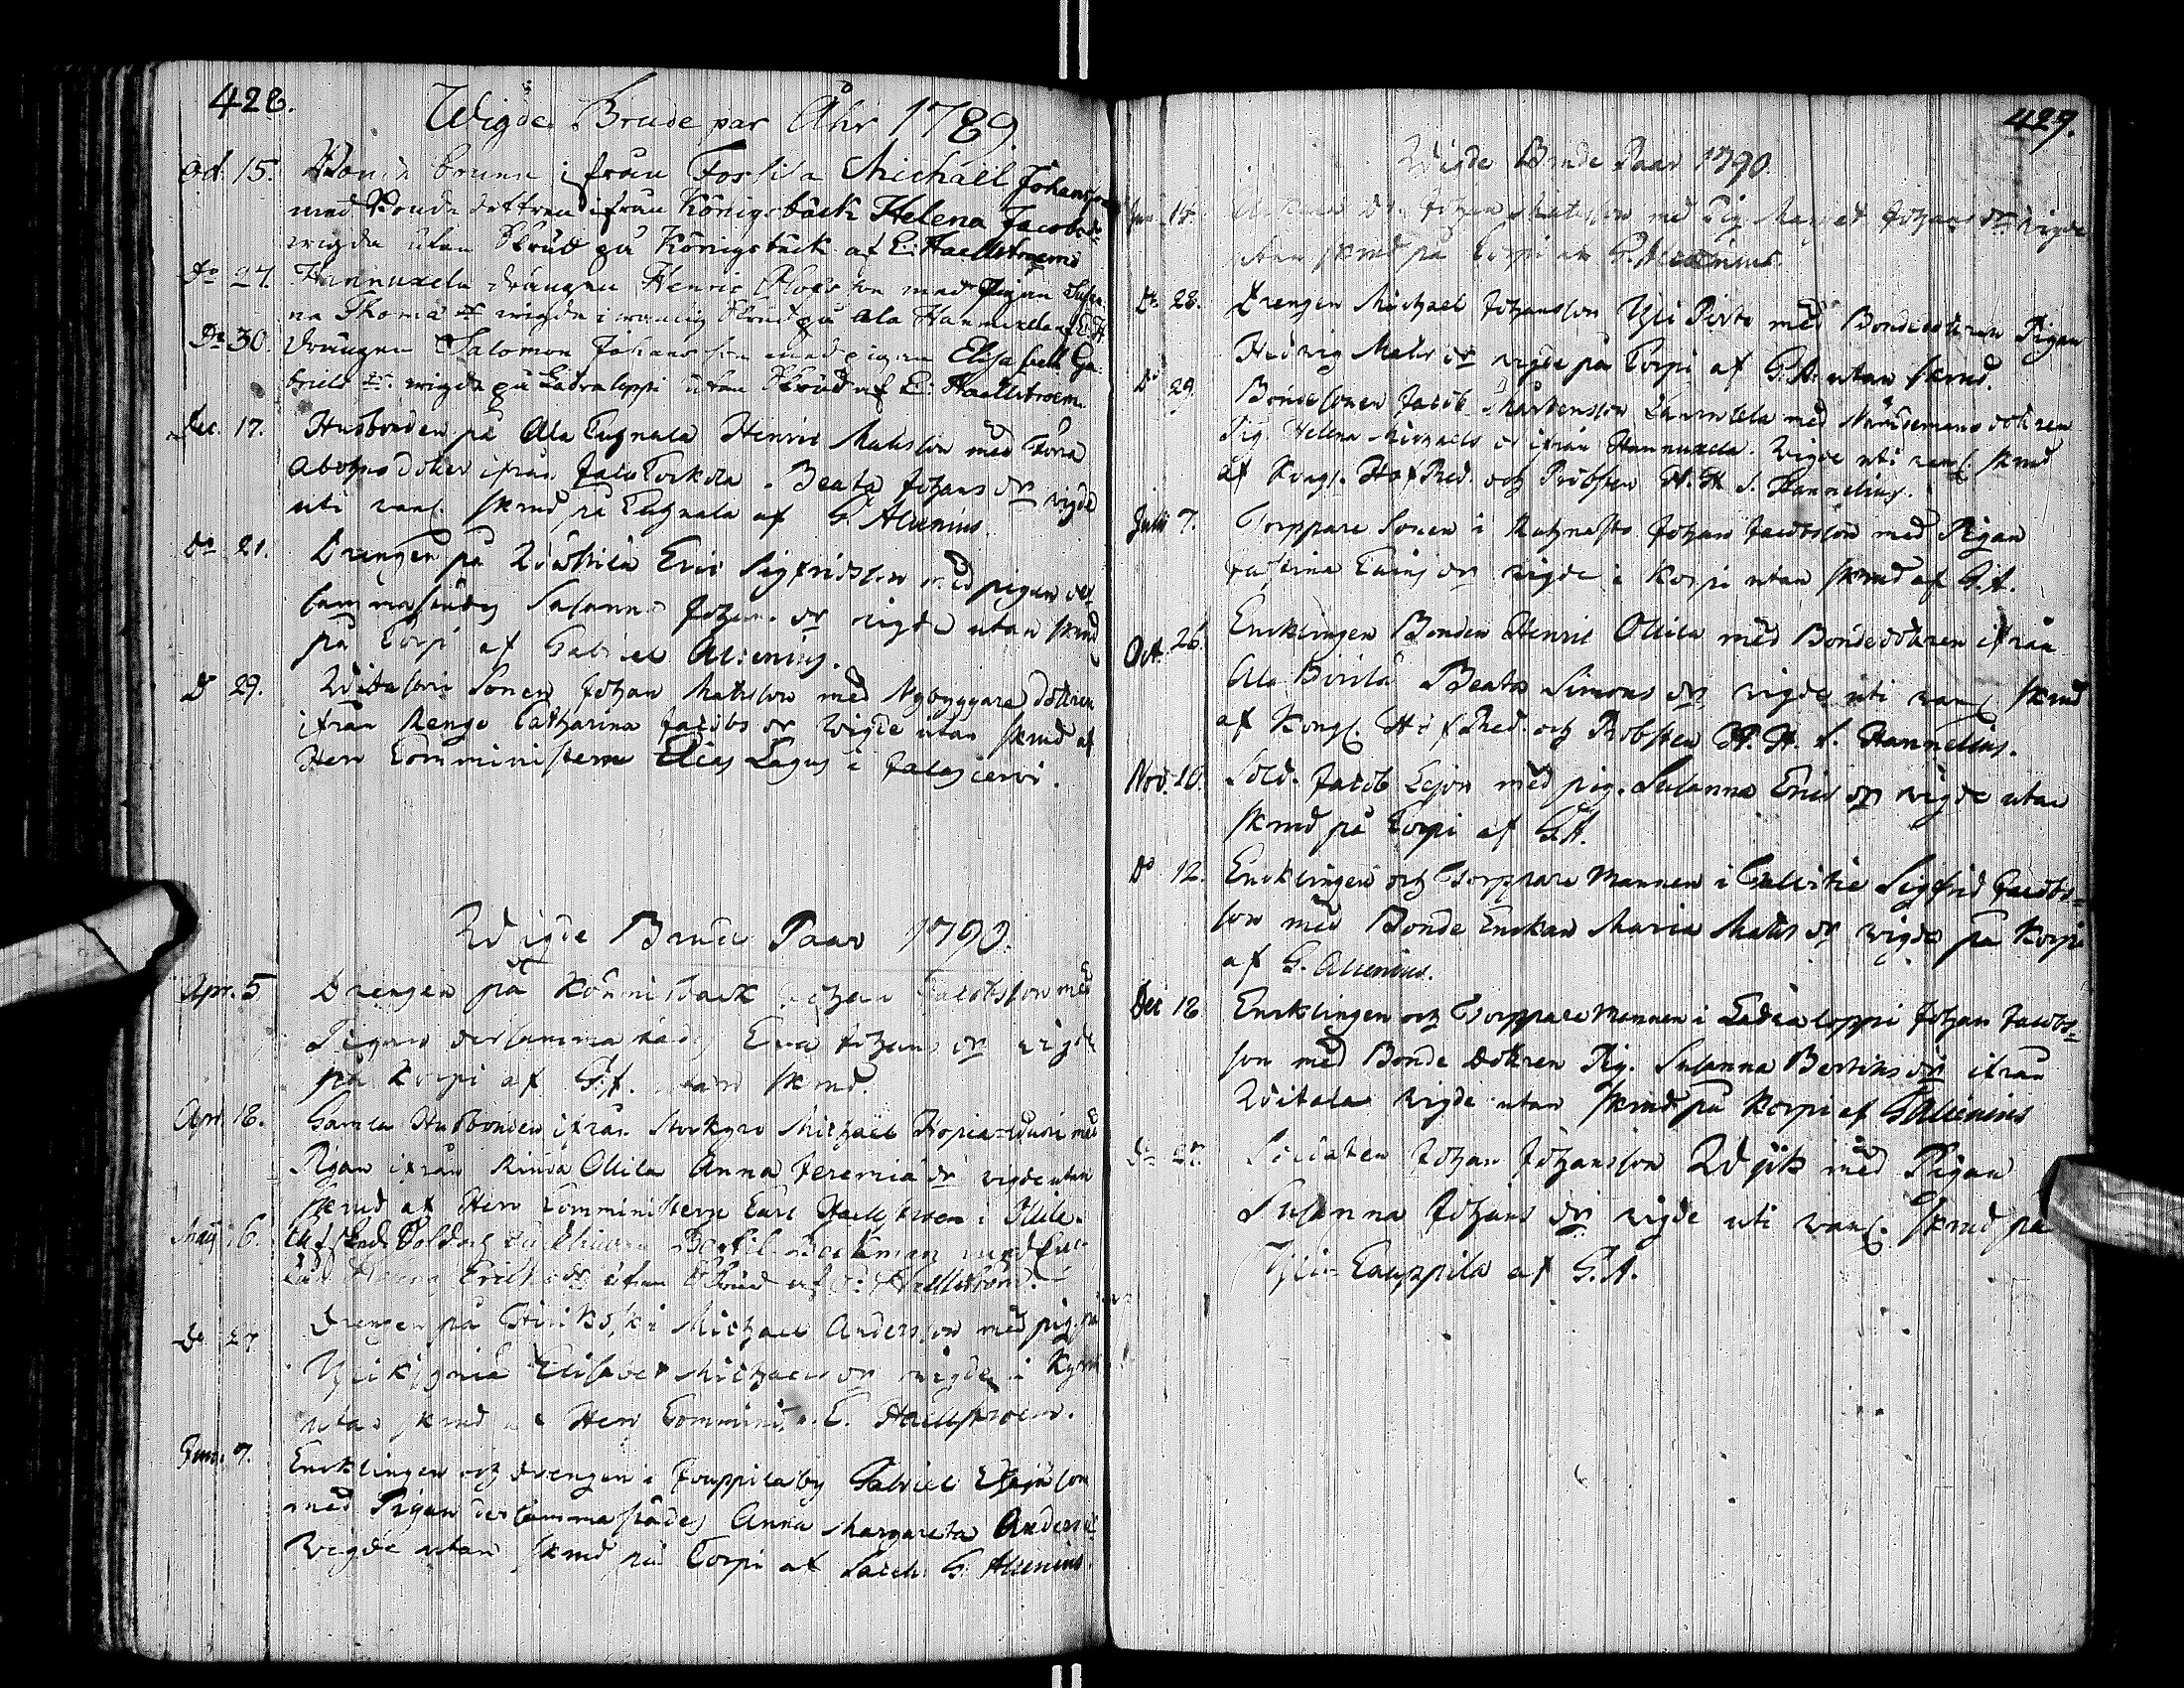 428.
Wigde Brude par Åhr 1789.
Oct. 15. Bonde Sonen ifrån Forsila Michaël Johansson
med Bonde dottren ifrån Königsbäck Helena Jacobsdr
wigda utan Skrud på Königsbäck af E: Haellstroem
Do 27. Hannuxela drängen Henric son med Pigan Susan
na Thomae dr wigda i wanlig Skrud på Ala Hannuxela af E. H.
Do 30 drängen Salomon Johansson med pigan Elisabeth Ga
briels dr. wigda på Ladraloppi utan Skrud af E: Haellstroem.
Dec. 17. Husbonden på Ala Tugnala Henric Matsson med Förra
Abotens doter ifrån Jala Torkola Beata Johans dr wigde
uti vanl. skrud på Tugnala af G Allenius
Do 21. Drengen på Eric Sigfridsson med pigan der
sammastädes Susanna Johans dr wigde utan skrud
på Torpi af Gabriel Allenius.
D 29. Sonen Johan Matsson med Nybyggare dottren
ifrån Rengo Catharina Jacobs dr Wigde utan skrud af
Herr Comministern Elias Lagus i Jalasjerwi.
Wigde Brude Paar 1790.
Apr. 5 Drengen på Könnisbäck Johan Jacobsson med
Pigan dersammastädes Eva Johans dr wigde
på Korpi af G: A. utan skrud.
Apr. 18. Gamla Husbonden ifrån Storkyro Michaël med
Pigan ifrån Ollila Anna Jeremiae dr wigde utan
skrud af Herr Comministern Carl Haellstroem i Ollila.
Maij 16. Afsked. Sold. och Encklingen Bertil Backman med
Erichs dr utan Skrud af E: Haellstroem.
Do 27 Drengen på Michael Andersson med pig. på
Elisabet Michaels dr wigde i Kyrckan
utan skrud af Herr Commini. E. Haellstroem.
Jun. 7. Encklingen och drengen i Jouppilaby Gabriel Esajason
med Pigan dersammastädes Anna Margareta Anders dr
Wigde utan skrud på Torpi af Sacell. G: Allenius.
429.
Wigde Brude Paar 1790.
Jun. 14. Johan Matsson med Pig. Margeta Johans dr wigde
utan skrud på Torpi af G. Allenius.
Do 28. Drengen Michael Johansson Yli Pirto med Bondedottren Pigan
Hedwig Mats dr wigde på Torpi af G. A. utan skrud.
Do 29. Bondesonen Jacob Mårtensson med Nämdemans dottren
Pig. Helena Michaels dr ifrån Hannuxela. Wigde uti vanl. skrud
af Kongl. Hof Pred. och Probsten H. H. J. Hannelius.
Julii 7. Torppare Sonen i Johan Jacobsson med Pigan
dr wigde i Korpi utan skrud af G. A.
Oct. 26. Encklingen Bonden Henric Ollila med Bonde dottren ifrån
Ala Beata Simons dr wigde uti vanl. skrud
af Kongl. Hof Pred. och Probsten H. H. J. Hannelius.
Nov. 10. Sold. Jacob Lejon med pig. Susanna Erics dr wigde utan
skrud på Torpi af G. A.
Do 12. Encklingen och Torppare Mannen i Sigfrid Jacobs=
son med Bonde Enckan Maria Mats dr wigde på Korpi
af G. Allenius.
Dec 12 Encklingen och Torppare Mannen i Ladraloppi Johan Jacobs=
son med Bonde Dottren Pig. Susanna Bertils dr ifrån
Witala Wigde utan skrud på Korpi af G Allenius
Do 27. Soldaten Johan Johansson med Pigan
Susanna Johans dr wigde uti vanl. skrud på
Yli Cauppila af G. A.